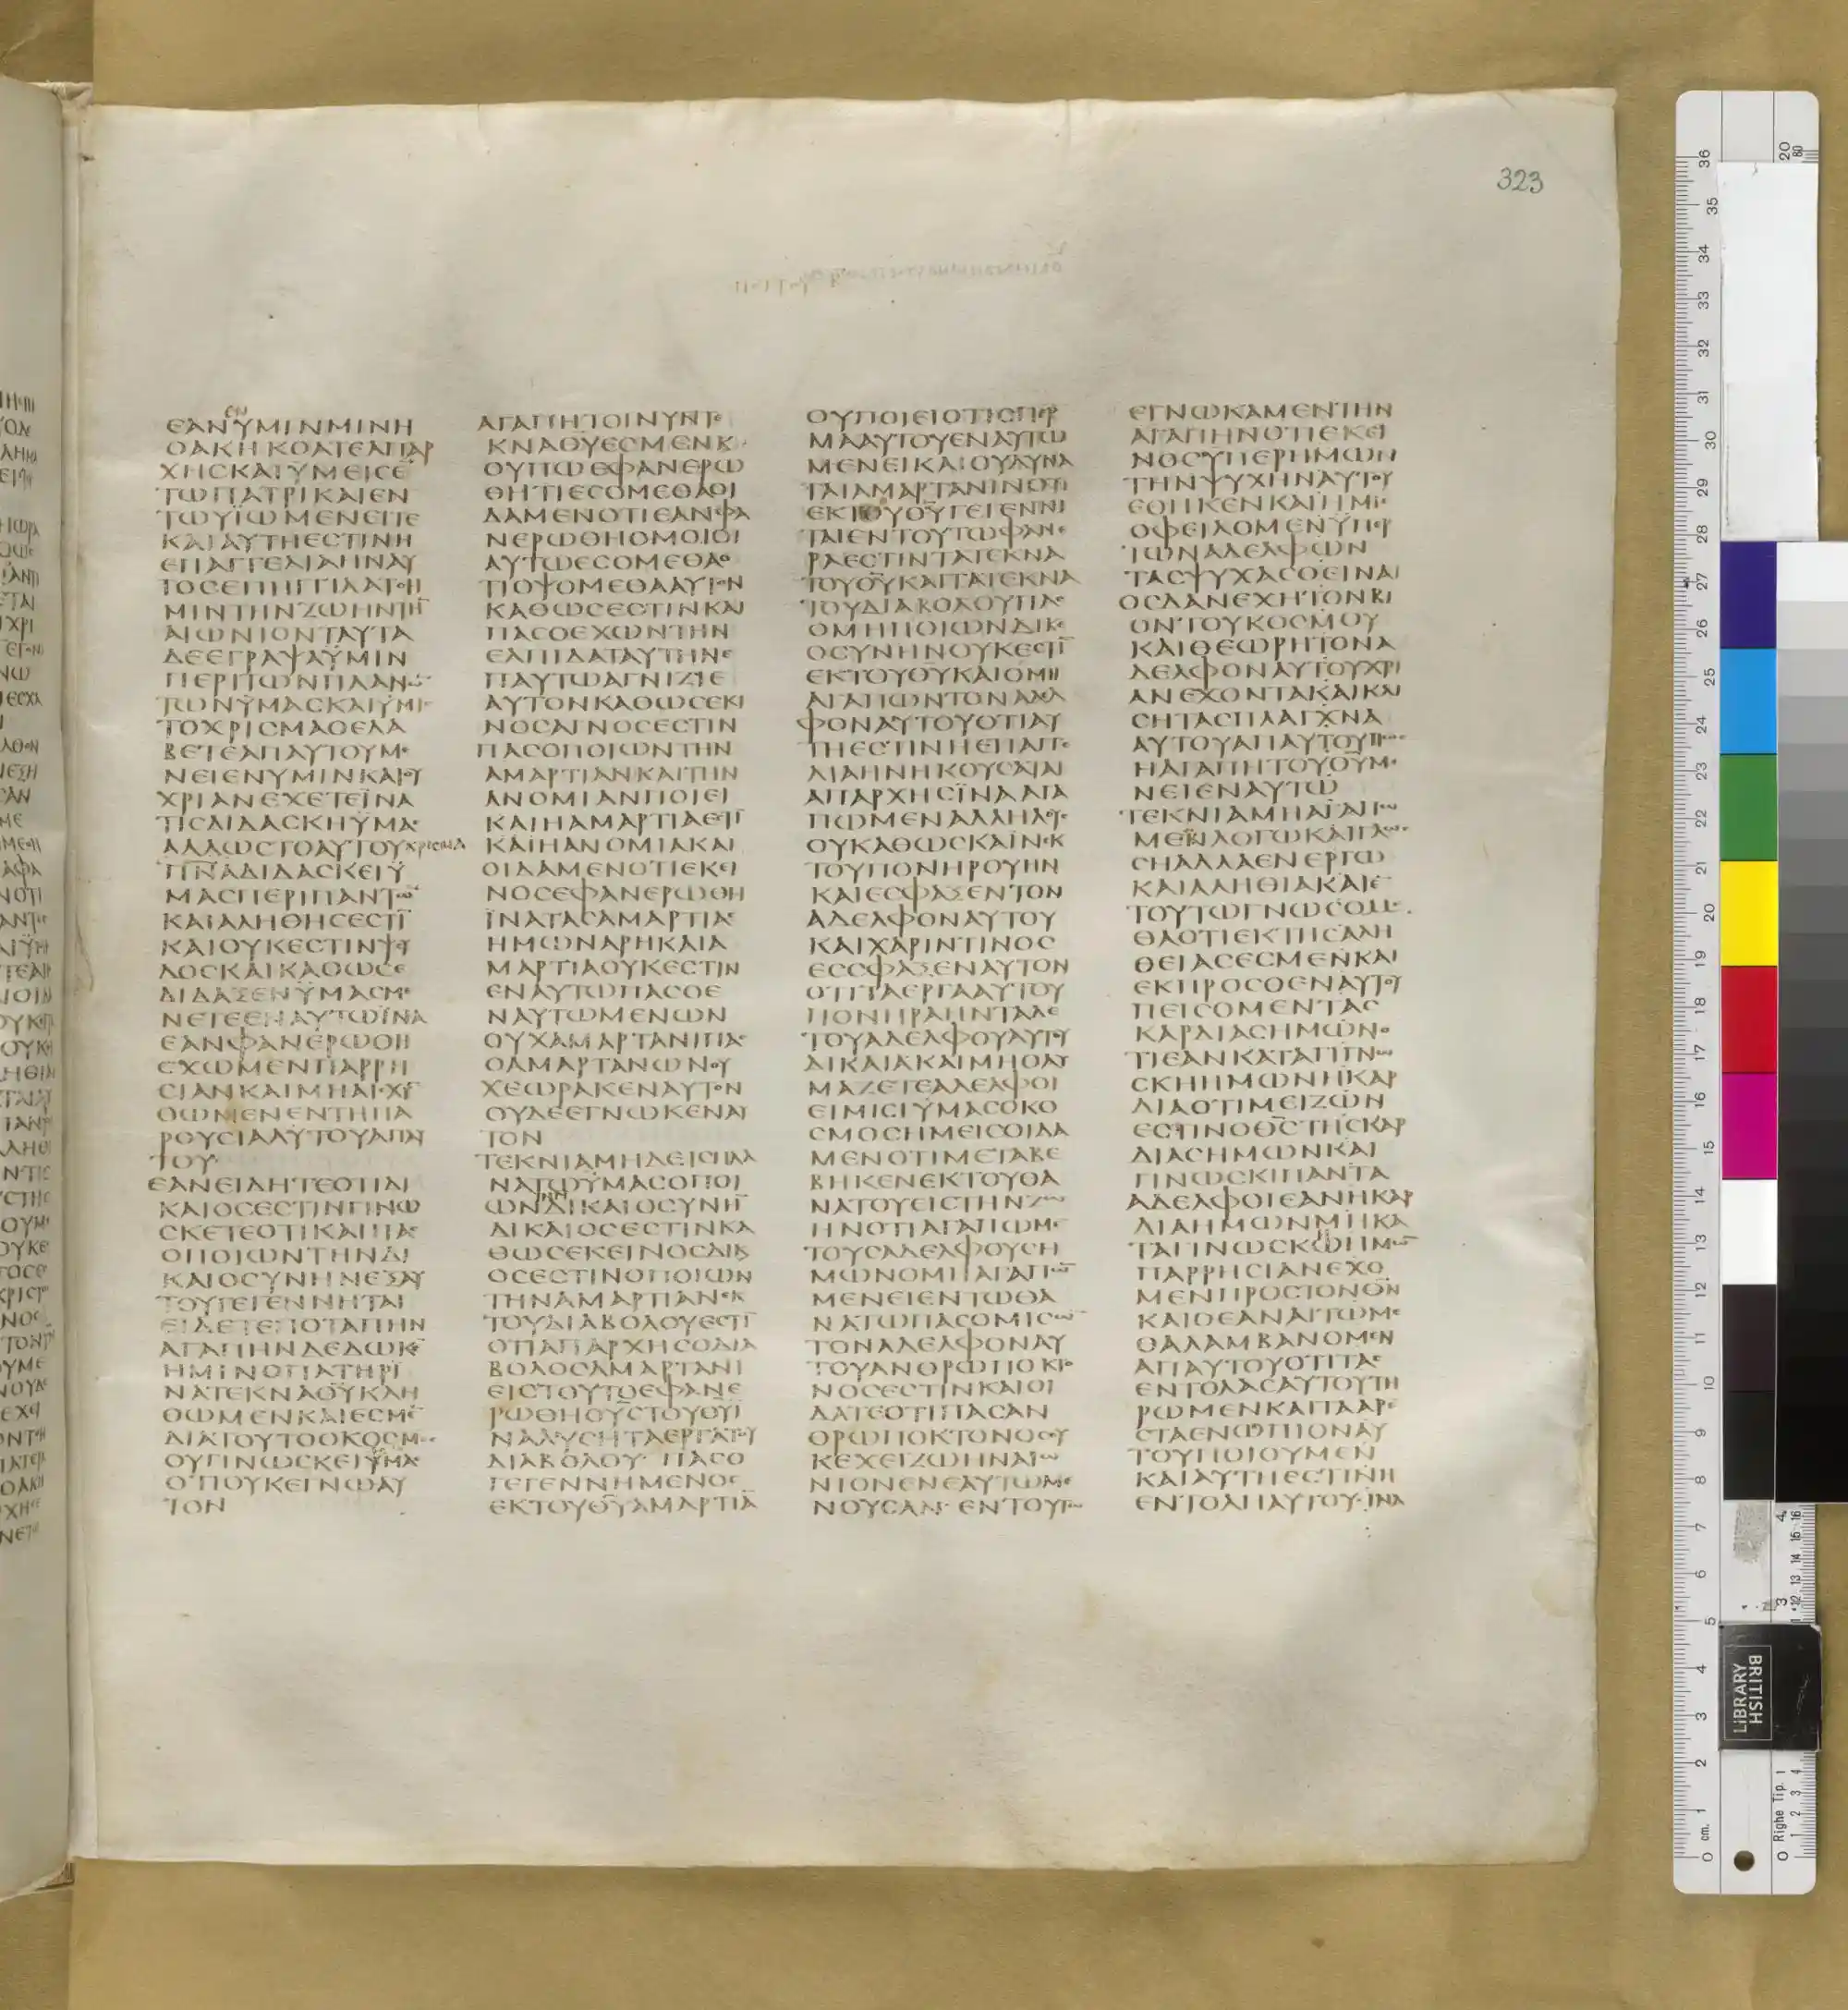 323
ΕΑΝΥΜΙΝΜΙΝΗ
ΟΑΚΗΚΟΑΤΕΑΠΑΡ
ΧΗСΚΑΙΥΜΕΙСΕ̅
ΤΩΠΑΤΡΙΚΑΙΕΝ
ΤΩΥΪΩΜΕΝΕΙΤΕ
ΚΑΙΑΥΤΗΕСΤΙΝΗ
ΕΠΑΓΓΕΛΙΑΗΝΑΥ
ΤΟСΕΠΗΓΓΙΛΑΤΟΗ
ΜΙΝΤΗΝΖΩΗΝΤΗ̅
ΑΙΩΝΙΟΝΤΑΥΤΑ
ΔΕΕΓΡΑΨΑΫΜΙΝ
ΠΕΡΙΤΩΝΠΛΑΝΩ̅
ΤΩΝΫΜΑСΚΑΙΥΜΙС
ΤΟΧΡΙСΜΑΟΕΛΑ
ΒΕΤΕΑΠΑΥΤΟΥΜΕ
ΝΕΙΕΝΥΜΙΝΚΑΙΟΥ
ΧΡΙΑΝΕΧΕΤΕΪΝΑ
ΤΙСΔΙΔΑСΚΗΫΜΑС
ΑΛΛΩСΤΟΑΥΤΟΥΧΡΙСΜΑ
Π̅Ν̅Α̅ΔΙΔΑСΚΕΙΫ
ΜΑСΠΕΡΙΠΑΝΤΩ̅
ΚΑΙΑΛΗΘΗСΕСΤΙ̅
ΚΑΙΟΥΚΕСΤΙΝΨΕΥ
ΔΟСΚΑΙΚΑΘΩСΕ
ΔΙΔΑΞΕΝΫΜΑСΜΕ
ΝΕΤΕΕΝΑΥΤΩΪΝΑ
ΕΑΝΦΑΝΕΡΩΘΗ
СΧΩΜΕΝΠΑΡΡΗ
СΙΑΝΚΑΙΜΗΑΙСΧΥ̅
ΘΩΜΕΝΕΝΤΗΠΑ
ΡΟΥСΙΑΑΥΤΟΥΑΠΑΥ
ΤΟΥ
ΕΑΝΕΙΔΗΤΕΟΤΙΔΙ
ΚΑΙΟСΕСΤΙΝΓΙΝΩ
СΚΕΤΕΟΤΙΚΑΙΠΑС
ΟΠΟΙΩΝΤΗΝΔΙ
ΚΑΙΟСΥΝΗΝΕΞΑΥ
ΤΟΥΓΕΓΕΝΝΗΤΑΙ
ΕΙΔΕΤΕΠΟΤΑΠΗΝ
ΑΓΑΠΗΝΔΕΔΩΚΕ̅
ΗΜΙΝΟΠΑΤΗΡΪ
ΝΑΤΕΚΝΑΘ̅Υ̅ΚΛΗ
ΘΩΜΕΝΚΑΙΕСΜΕ̅
ΔΙΑΤΟΥΤΟΟΚΟСΜΟС
ΟΥΓΙΝΩСΚΕΙΫΜΑС
ΟΤΙΟΥΚΕΓΝΩΑΥ
ΤΟΝ
ΑΓΑΠΗΤΟΙΝΥΝΤΕ
ΚΝΑΘ̅Υ̅ΕСΜΕΝΚΑΙ
ΟΥΠΩΕΦΑΝΕΡΩ
ΘΗΤΙΕСΟΜΕΘΑΟΙ
ΔΑΜΕΝΟΤΙΕΑΝΦΑ
ΝΕΡΩΘΗΟΜΟΙΟΙ
ΑΥΤΩΕСΟΜΕΘΑΟ
ΤΙΟΨΟΜΕΘΑΑΥΤΟΝ
ΚΑΘΩСΕСΤΙΝΚΑΙ
ΠΑСΟΕΧΩΝΤΗΝ
ΕΛΠΙΔΑΤΑΥΤΗΝΕ
ΠΑΥΤΩΑΓΝΙΖΙΕ
ΑΥΤΟΝΚΑΘΩСΕΚΙ
ΝΟСΑΓΝΟСΕСΤΙΝ
ΠΑСΟΠΟΙΩΝΤΗΝ
ΑΜΑΡΤΙΑΝΚΑΙΤΗΝ
ΑΝΟΜΙΑΝΠΟΙΕΙ
ΚΑΙΗΑΜΑΡΤΙΑΕСΤΙ̅
ΚΑΙΗΑΝΟΜΙΑΚΑΙ
ΟΙΔΑΜΕΝΟΤΙΕΚΕΙ
ΝΟСΕΦΑΝΕΡΩΘΗ
ΪΝΑΤΑСΑΜΑΡΤΙΑС
ΗΜΩΝΑΡΗΚΑΙΑ
ΜΑΡΤΙΑΟΥΚΕСΤΙΝ
ΕΝΑΥΤΩΠΑСΟΕ
ΝΑΥΤΩΜΕΝΩΝ
ΟΥΧΑΜΑΡΤΑΝΙΠΑС
ΟΑΜΑΡΤΑΝΩΝΟΥ
ΧΕΩΡΑΚΕΝΑΥΤΟΝ
ΟΥΔΕΕΓΝΩΚΕΝΑΥ
ΤΟΝ
ΤΕΚΝΙΑΜΗΔΕΙСΠΛΑ
ΝΑΤΩΫΜΑСΟΠΟΙ
ΩΝΔΙΚΑΙΟСΥΝΗ̅
ΔΙΚΑΙΟСΕСΤΙΝΚΑ
ΘΩСΕΚΕΙΝΟСΔΙΚΑΙ
ΟСΕСΤΙΝΟΠΟΙΩΝ
ΤΗΝΑΜΑΡΤΙΑΝΕΚ
ΤΟΥΔΙΑΒΟΛΟΥΕСΤΙ̅
ΟΤΙΑΠΑΡΧΗСΟΔΙΑ
ΒΟΛΟСΑΜΑΡΤΑΝΙ
ΕΙСΤΟΥΤΟΕΦΑΝΕ
ΡΩΘΗΟΥ̅С̅ΤΟΥΘ̅Υ̅Ϊ
ΝΑΛΥСΗΤΑΕΡΓΑΤΟΥ
ΔΙΑΒΟΛΟΥ· ΠΑСΟ
ΓΕΓΕΝΝΗΜΕΝΟС
ΕΚΤΟΥΘ̅Υ̅ΑΜΑΡΤΙΑ̅
ΟΥΠΟΙΕΙΟΤΙСΠΕΡ
ΜΑΑΥΤΟΥΕΝΑΥΤΩ
ΜΕΝΕΙΚΑΙΟΥΔΥΝΑ
ΤΑΙΑΜΑΡΤΑΝΙΝΟΤΙ
ΕΚΤΟΥΘ̅Υ̅ΓΕΓΕΝΝΗ
ΤΑΙΕΝΤΟΥΤΩΦΑΝΕ
ΡΑΕСΤΙΝΤΑΤΕΚΝΑ
ΤΟΥΘ̅Υ̅ΚΑΙΤΑΤΕΚΝΑ
ΤΟΥΔΙΑΒΟΛΟΥΠΑС
ΟΜΗΠΟΙΩΝΔΙΚΑΙ
ΟСΥΝΗΝΟΥΚΕСΤΙ̅
ΕΚΤΟΥΘ̅Υ̅ΚΑΙΟΜΗ
ΑΓΑΠΩΝΤΟΝΑΔΕΛ
ΦΟΝΑΥΤΟΥΟΤΙΑΥ
ΤΗΕСΤΙΝΗΕΠΑΓΓΕ
ΛΙΑΗΝΗΚΟΥСΑΤΑΙ
ΑΠΑΡΧΗСΪΝΑΑΓΑ
ΠΩΜΕΝΑΛΛΗΛΟΥС
ΟΥΚΑΘΩСΚΑΪΝΕΚ
ΤΟΥΠΟΝΗΡΟΥΗΝ
ΚΑΙΕСΦΑΞΕΝΤΟΝ
ΑΔΕΛΦΟΝΑΥΤΟΥ
ΚΑΙΧΑΡΙΝΤΙΝΟС
ΕСΦΑΞΕΝΑΥΤΟΝ
ΟΤΙΤΑΕΡΓΑΑΥΤΟΥ
ΠΟΝΗΡΑΗΝΤΑΔΕ
ΤΟΥΑΔΕΛΦΟΥΑΥΤΟΥ
ΔΙΚΑΙΑΚΑΙΜΗΘΑΥ
ΜΑΖΕΤΕΑΔΕΛΦΟΙ
ΕΙΜΙСΙΫΜΑСΟΚΟ
СΜΟСΗΜΕΙСΟΙΔΑ
ΜΕΝΟΤΙΜΕΤΑΒΕ
ΒΗΚΕΝΕΚΤΟΥΘΑ
ΝΑΤΟΥΕΙСΤΗΝΖΩ
ΗΝΟΤΙΑΓΑΠΩΜΕ
ΤΟΥСΑΔΕΛΦΟΥСΗ
ΜΩΝΟΜΗΑΓΑΠΩ̅
ΜΕΝΕΙΕΝΤΩΘΑ
ΝΑΤΩΠΑСΟΜΙСΩ̅
ΤΟΝΑΔΕΛΦΟΝΑΥ
ΤΟΥΑΝΘΡΩΠΟΚΤΟ
ΝΟСΕСΤΙΝΚΑΙΟΙ
ΔΑΤΕΟΤΙΠΑСΑΝ
ΘΡΩΠΟΚΤΟΝΟСΟΥ
ΚΕΧΕΙΖΩΗΝΑΙΩ
ΝΙΟΝΕΝΕΑΥΤΩΜΕ
ΝΟΥСΑΝ· ΕΝΤΟΥΤΩ
ΕΓΝΩΚΑΜΕΝΤΗΝ
ΑΓΑΠΗΝΟΤΙΕΚΕΙ
ΝΟСΥΠΕΡΗΜΩΝ
ΤΗΝΨΥΧΗΝΑΥΤΟΥ
ΕΘΗΚΕΝΚΑΙΗΜΙС
ΟΦΕΙΛΟΜΕΝΫΠΕΡ
ΤΩΝΑΔΕΛΦΩΝ
ΤΑСΨΥΧΑСΘΕΙΝΑΙ
ΟСΔΑΝΕΧΗΤΟΝΒΙ
ΟΝΤΟΥΚΟСΜΟΥ
ΚΑΙΘΕΩΡΗΤΟΝΑ
ΔΕΛΦΟΝΑΥΤΟΥΧΡΙ
ΑΝΕΧΟΝΤΑΚΑΙΚΛΙ
СΗΤΑСΠΛΑΓΧΝΑ
ΑΥΤΟΥΑΠΑΥΤΟΥΠΩС
ΗΑΓΑΠΗΤΟΥΘ̅Υ̅ΜΕ
ΝΕΙΕΝΑΥΤΩ
ΤΕΚΝΙΑΜΗΑΓΑΠΩ
ΜΕΝΛΟΓΩΚΑΙΓΛΩС
СΗΑΛΛΑΕΝΕΡΓΩ
ΚΑΙΑΛΗΘΙΑΚΑΙΕ̅
ΤΟΥΤΩΓΝΩСΟΜΕ
ΘΑΟΤΙΕΚΤΗСΑΛΗ
ΘΕΙΑСΕСΜΕΝΚΑΙ
ΕΚΠΡΟСΘΕΝΑΥΤΟΥ
ΠΕΙСΟΜΕΝΤΑС
ΚΑΡΔΙΑСΗΜΩΝΟ
ΤΙΕΑΝΚΑΤΑΓΙΓΝΩ
СΚΗΗΜΩΝΗΚΑΡ
ΔΙΑΟΤΙΜΕΙΖΩΝ
ΕСΤΙΝΟΘ̅С̅ΤΗСΚΑΡ
ΔΙΑСΗΜΩΝΚΑΙ
ΓΙΝΩСΚΙΠΑΝΤΑ
ΑΔΕΛΦΟΙΕΑΝΗΚΑΡ
ΔΙΑΗΜΩΝΜΗΚΑ
ΤΑΓΙΝΩСΚΩΗΜΩ̅
ΠΑΡΡΗСΙΑΝΕΧΟ
ΜΕΝΠΡΟСΤΟΝΘ̅Ν̅
ΚΑΙΟΕΑΝΑΙΤΩΜΕ
ΘΑΛΑΜΒΑΝΟΜΕΝ
ΑΠΑΥΤΟΥΟΤΙΤΑС
ΕΝΤΟΛΑСΑΥΤΟΥΤΗ
ΡΩΜΕΝΚΑΙΤΑΑΡΕ
СΤΑΕΝΩΠΙΟΝΑΥ
ΤΟΥΠΟΙΟΥΜΕΝ
ΚΑΙΑΥΤΗΕСΤΙΝΗ
ΕΝΤΟΛΗΑΥΤΟΥ·ΪΝΑ